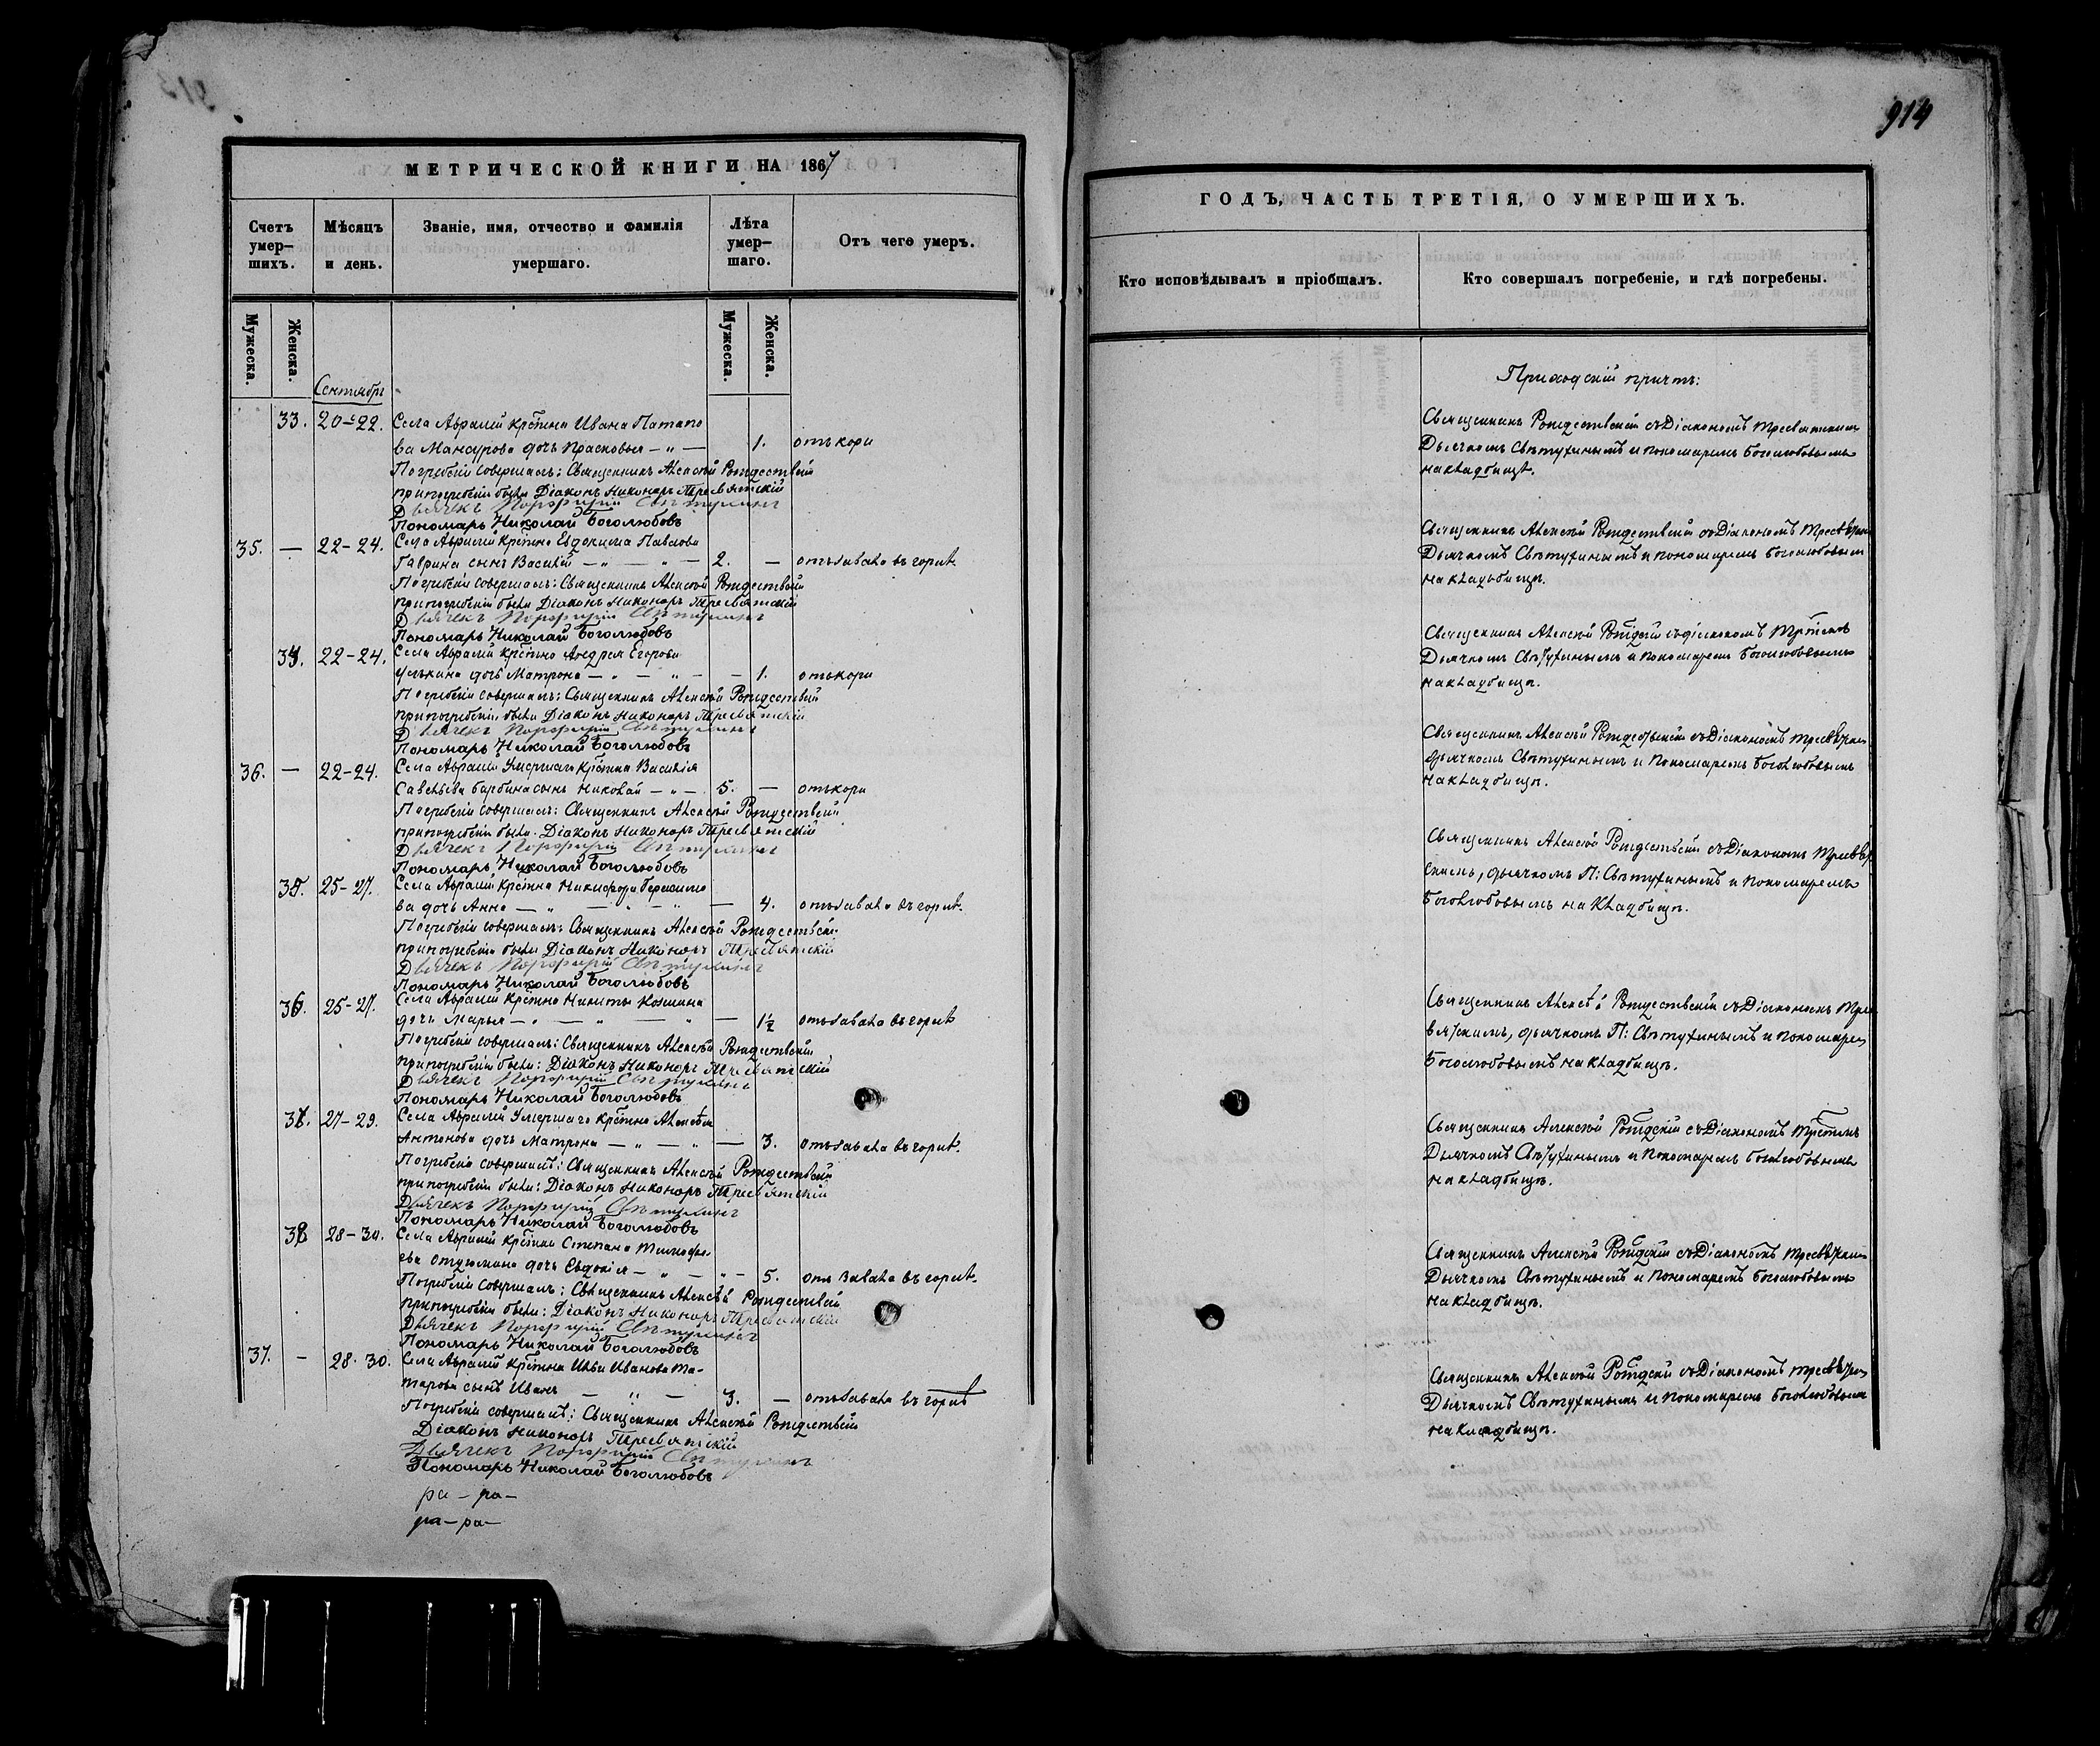 914
МЕТРИЧЕСКОЙ КНИГИ НА 1867
Счетъ умер-шихъ.
Мѣсяцъ и день.
Званіе, имя, отчество и фамилія умершаго.
Лѣта умер-шаго.
Отъ чего умеръ.
Мужеска.
Женска.
Мужеска.
Женска.
Сентябрь
33. 20-22. Села Аврамй крестина Ивана Патапо
ва Мансурова дочь Прасковья — „ — 1. отъ кори
Погребеніе совершалъ: Священникъ Алексѣй Рождествен
при погребеніи были Діаконъ Никоноръ Тресвятскій
Дьячекъ Порфирій Свѣтухинъ
Пономарь Николай Боголюбовъ
35. — 22-24. Села Аврамй крестина Евдокима Павлова
Гаврина сынъ Василій — „ — „ — 2. — отъ завала въ горлѣ
Погребеніе совершалъ: Священникъ Алексѣй Рождествен
при погребеніи были Діаконъ Никоноръ Тресвятскій
Дьячекъ Порфирій Свѣтухинъ
Пономарь Николай Боголюбовъ
34. 22-24. Села Аврамй крестина Андрея Егорова
дочь Матрона — „ — „ — — 1. отъ кори
Погребеніе совершалъ: Священникъ Алексѣй Рождествен
при погребеніи были Діаконъ Никоноръ Тресвятскій
Дьячекъ Порфирій Свѣтухинъ
Пономарь Николай Боголюбовъ
36. — 22-24. Села Аврамй Умершаго крестина Василія
Савельева барбина сынъ Николай — „ — 5. — отъ кори
Погребеніе совершалъ: Священникъ Алексѣй Рождествен
при погребеніи были. Діаконъ Никоноръ Тресвятскій
Дьячекъ Порфирій Свѣтухинъ
Пономарь Николай Боголюбовъ
35. 25-27. Села Аврамй крестина Никифора Герасимо
ва дочь Анна — „ — „ — „ — 4. отъ завала въ горлѣ.
Погребеніе совершалъ: Священникъ Алексѣй Рождествен
при погребеніи были Діаконъ Никоноръ Тресвятскій
Дьячекъ Порфирій Свѣтухинъ
Пономарь Николай Боголюбовъ
36. 25-27. Села Аврамй крестина Никиты Кошина
дочь Марья — „ — „ — „ — 1½ отъ завала въ горлѣ
Погребеніе совершалъ: Священникъ Алексѣй Рождествен
при погребеніи были: Діаконъ Никоноръ Тресвятскій
Дьячекъ Порфирій Свѣтухинъ
Пономарь Николай Боголюбовъ
37. 27-29. Села Аврамй Умершаго крестина Алексѣя
Антонова дочь Матрона — „ — „ — 3. отъ завала въ горлѣ.
Погребеніе совершалъ: Священникъ Алексѣй Рождествен
при погребеніи были: Діаконъ Никоноръ Тресвятскій
Дьячекъ Порфирій Свѣтухинъ
Пономарь Николай Боголюбовъ
38 28-30. Села Аврамй крестина Степана Тимофе-
ева дочь Евдокія — „ — „ — 5. отъ завала въ горлѣ.
Погребеніе совершалъ: Священникъ Алексѣй Рождествен
при погребеніи были: Діаконъ Никоноръ Тресвятскій
Дьячекъ Порфирій Свѣтухинъ
Пономарь Николай Боголюбовъ
37. — 28-30. Села Аврамй крестина Ильи Иванова Та-
тарова сынъ Иванъ — „ — 3. — отъ завала въ горлѣ
Погребеніе совершалъ: Священникъ Алексѣй Рождествен
Діаконъ Никоноръ Тресвятскій
Дьячекъ Порфирій Свѣтухинъ
Пономарь Николай Боголюбовъ
ра — ра —
ра — ра —
ГОДЪ, ЧАСТЬ ТРЕТІЯ, О УМЕРШИХЪ.
Кто исповѣдывалъ и пріобщалъ.
Кто совершалъ погребеніе, и гдѣ погребены.
Приходскій причтъ:
Священникъ Рождественскій съ Діакономъ Тресвятскимъ
Дьячкомъ Свѣтухинымъ и пономаремъ Боголюбовымъ
на кладбищѣ.
Священникъ Алексѣй Рождественскій съ Діакономъ Тресвятским
Дьячкомъ Свѣтухинымъ и пономаремъ Боголюбовым
на кладбищѣ.
Священникъ Алексѣй Рождскій съ діакономъ Трстскмъ
Дьячкомъ Свѣтухинымъ и пономаремъ Боголюбовымъ
на кладбищѣ.
Священникъ Алексѣй Рождественскій съ Діакономъ Тресвятским
дьячкомъ Свѣтухинымъ и Пономаремъ Боголюбовымъ
на кладбищѣ.
Священникъ Алексѣй Рождественскій съ Діакономъ Тресвят
скимъ, дьячкомъ П: Свѣтухинымъ и пономаремъ
Боголюбовымъ на кладбищѣ.
Священникъ Алексѣй Рождественскій съ Діакономъ Трес
вятскимъ, дьячкомъ П: Свѣтухинымъ и пономарем
Боголюбовымъ на кладбищѣ.
Священникъ Алексѣй Рождскій съ Діакономъ Трстскмъ
Дьячкомъ Свѣтухинымъ и пономаремъ Боголюбовымъ
на кладбищѣ.
Священникъ Алексѣй Рождскій съ Діакономъ Тресвятским
Дьячкомъ Свѣтухинымъ и пономаремъ Боголюбовымъ
на кладбищѣ.
Священникъ Алексѣй Рождскій съ Діакономъ Тресвятским
Дьячкомъ Свѣтухинымъ и пономаремъ Боголюбовымъ
на кладбищѣ.